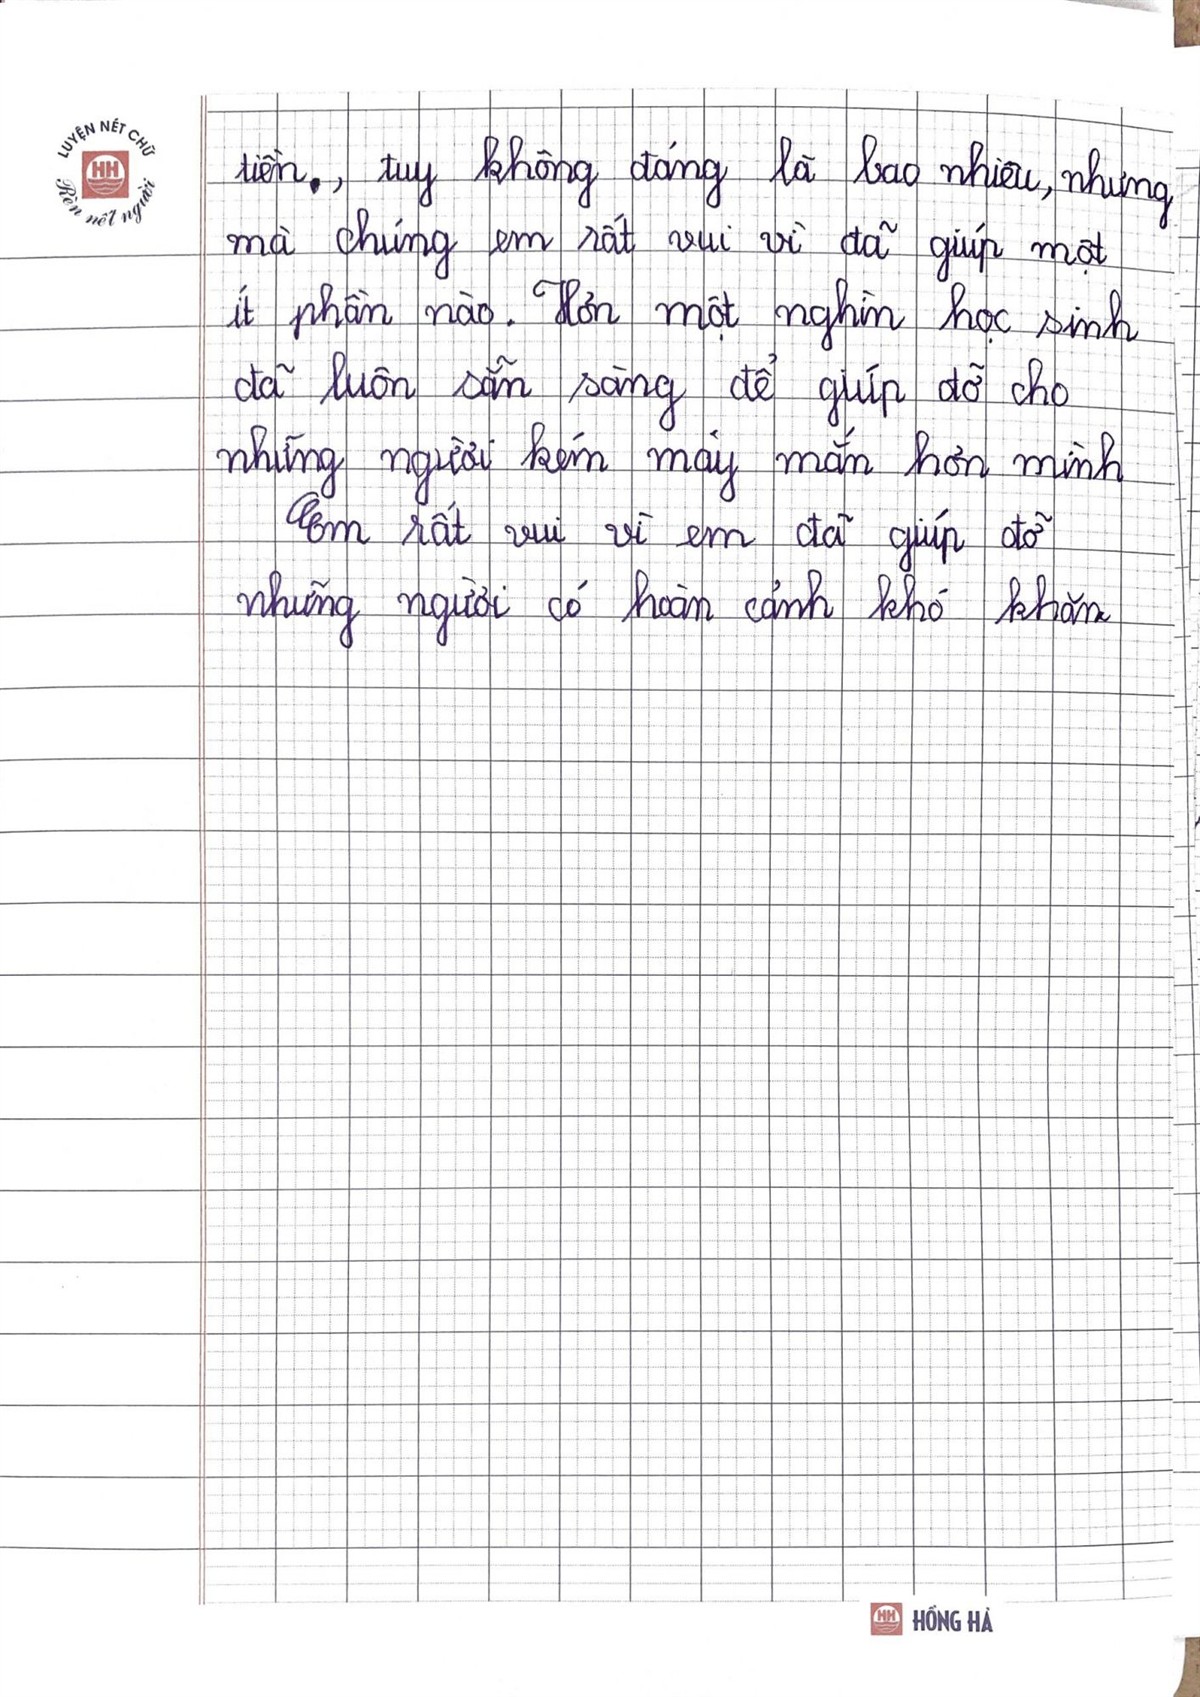 LUYỆN NÉT CHỮ
HH
Rèn nết người
tiền., tuy không đáng là bao nhiêu, nhưng
mà chúng em rất vui vì đã giúp một
ít phần nào. Hơn một nghìn học sinh
đã luôn sẵn sàng để giúp đỡ cho
những người kém máy mắn hơn mình
Em rất vui vì em đã giúp đỡ
những người có hoàn cảnh khó khăn
HH HỒNG HÀ